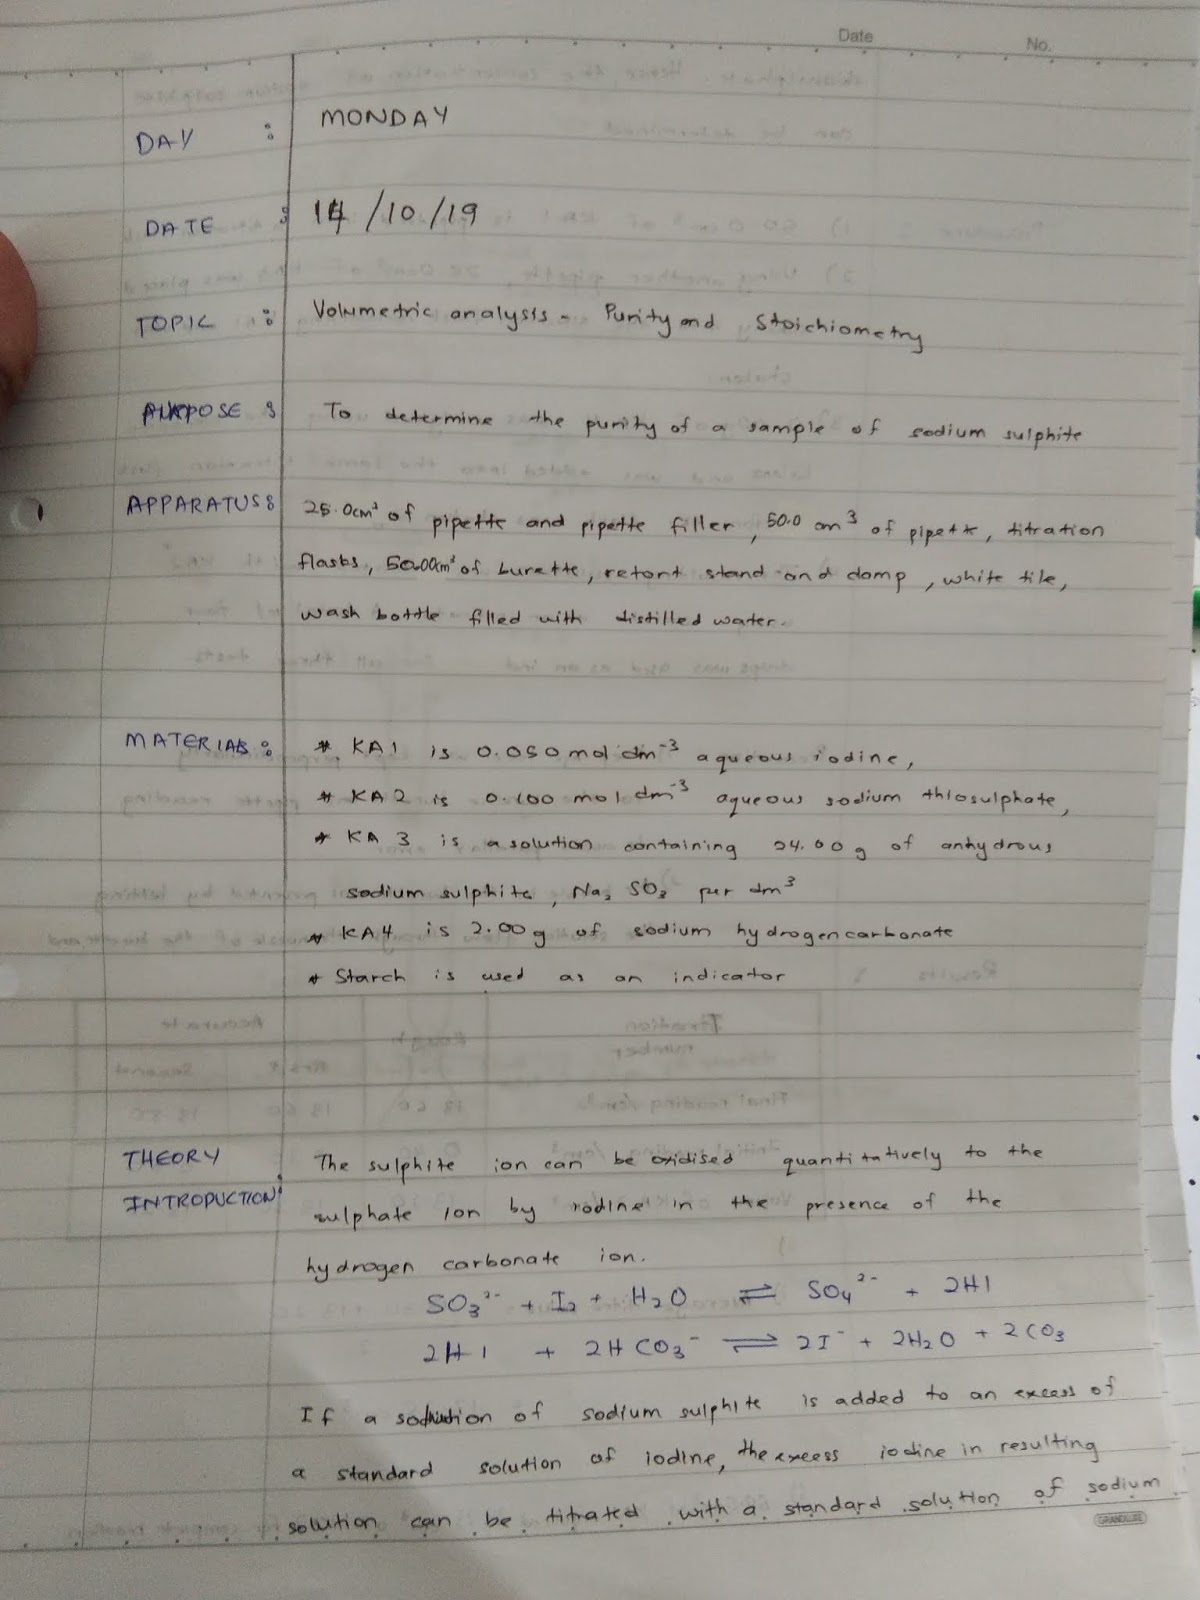 Date No.
DAY : MONDAY
DATE : 14/10/19
TOPIC : Volumetric analysis - Purity and Stoichiometry
PURPOSE : To determine the purity of a sample of sodium sulphite
APPARATUS : 25.0cm³ of pipette and pipette filler, 50.0 cm³ of pipette, titration
flasks, 50.00cm³ of burette, retort stand and clamp, white tile,
wash bottle filled with distilled water.
MATERIALS : * KA1 is 0.050 mol dm⁻³ aqueous iodine,
* KA2 is 0.100 mol dm⁻³ aqueous sodium thiosulphate,
* KA3 is a solution containing 24.00g of anhydrous
sodium sulphite, Na₂ SO₃ per dm³
* KA4 is 2.00g of sodium hydrogencarbonate
* Starch is used as an indicator
THEORY The sulphite ion can be oxidised quantitatively to the
INTRODUCTION: sulphate ion by iodine in the presence of the
hydrogen carbonate ion.
SO₃²⁻ + I₂ + H₂O ⇌ SO₄²⁻ + 2HI
2HI + 2HCO₃⁻ ⇌ 2I⁻ + 2H₂O + 2CO₃
If a solution of sodium sulphite is added to an excess of
a standard solution of iodine, the excess iodine in resulting
solution can be titrated with a standard solution of sodium
GRANDLUXE